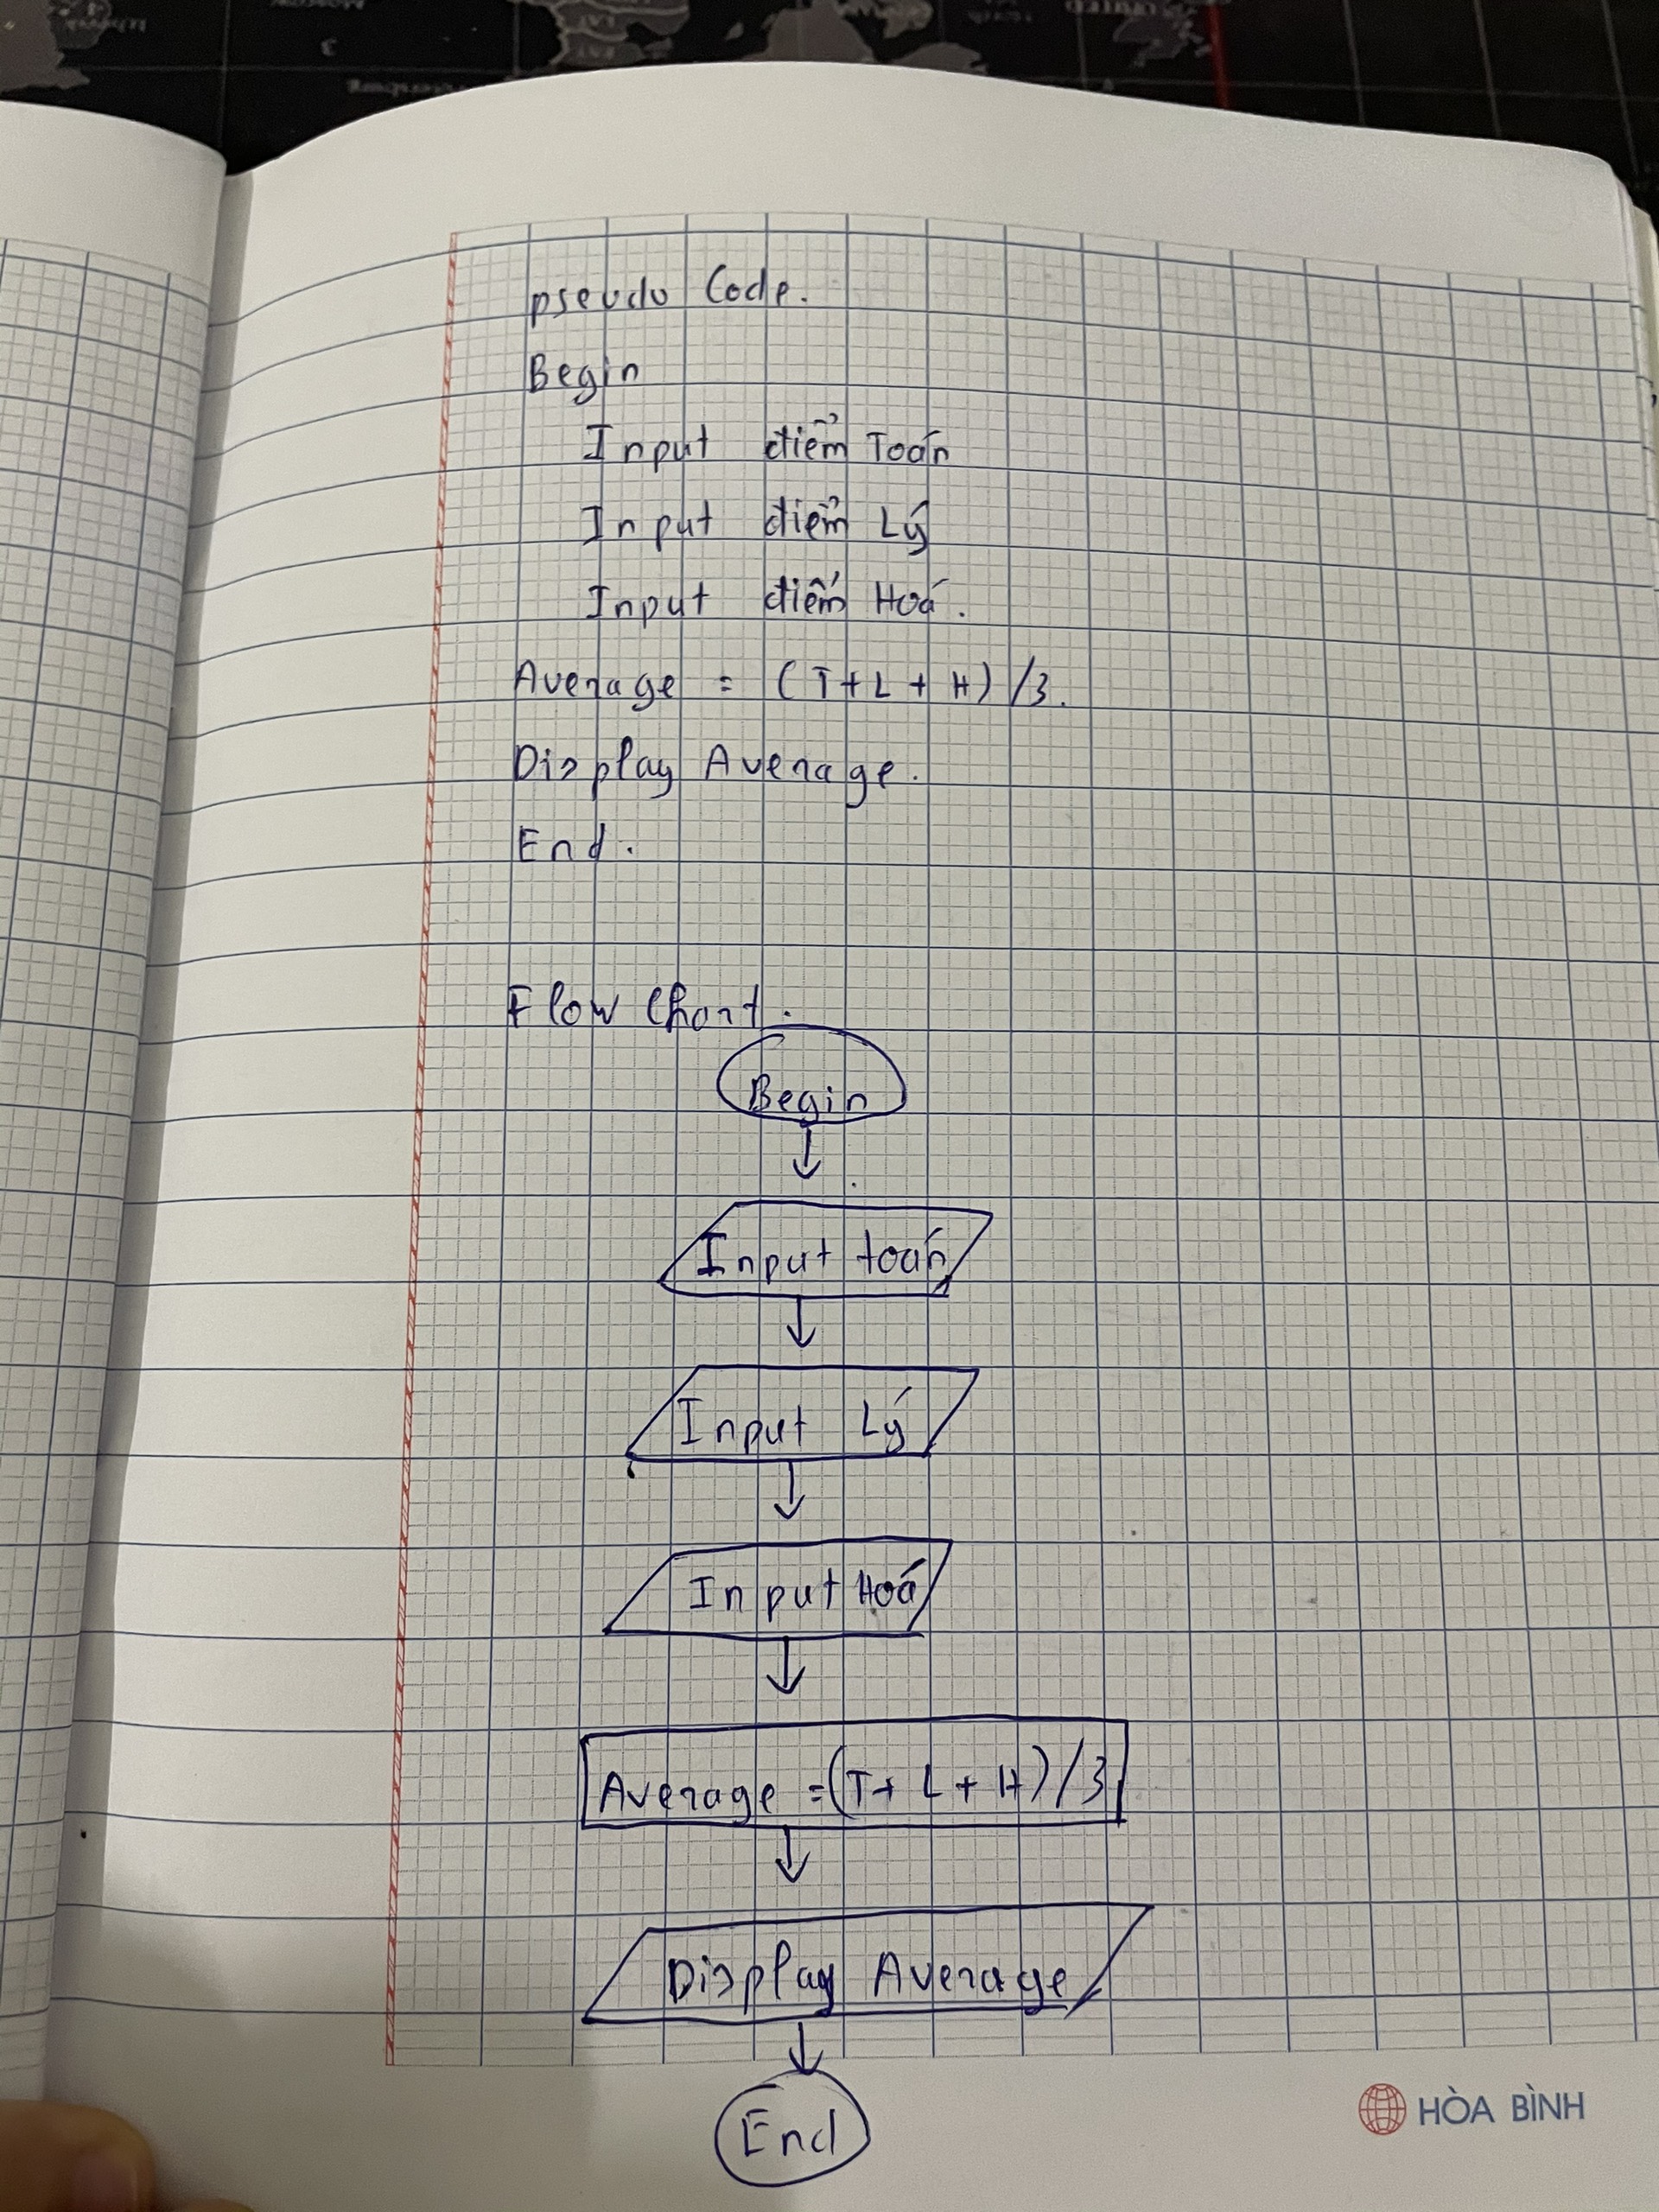 pseudo Code.
Begin
Input điểm Toán
Input điểm Lý
Input điểm Hoá.
Average = (T+L+H)/3.
Display Average.
End.
Flow Chart.
Begin
Input toán
Input Lý
Input Hoá
Average =(T+L+H)/3
Display Average
End
HÒA BÌNH